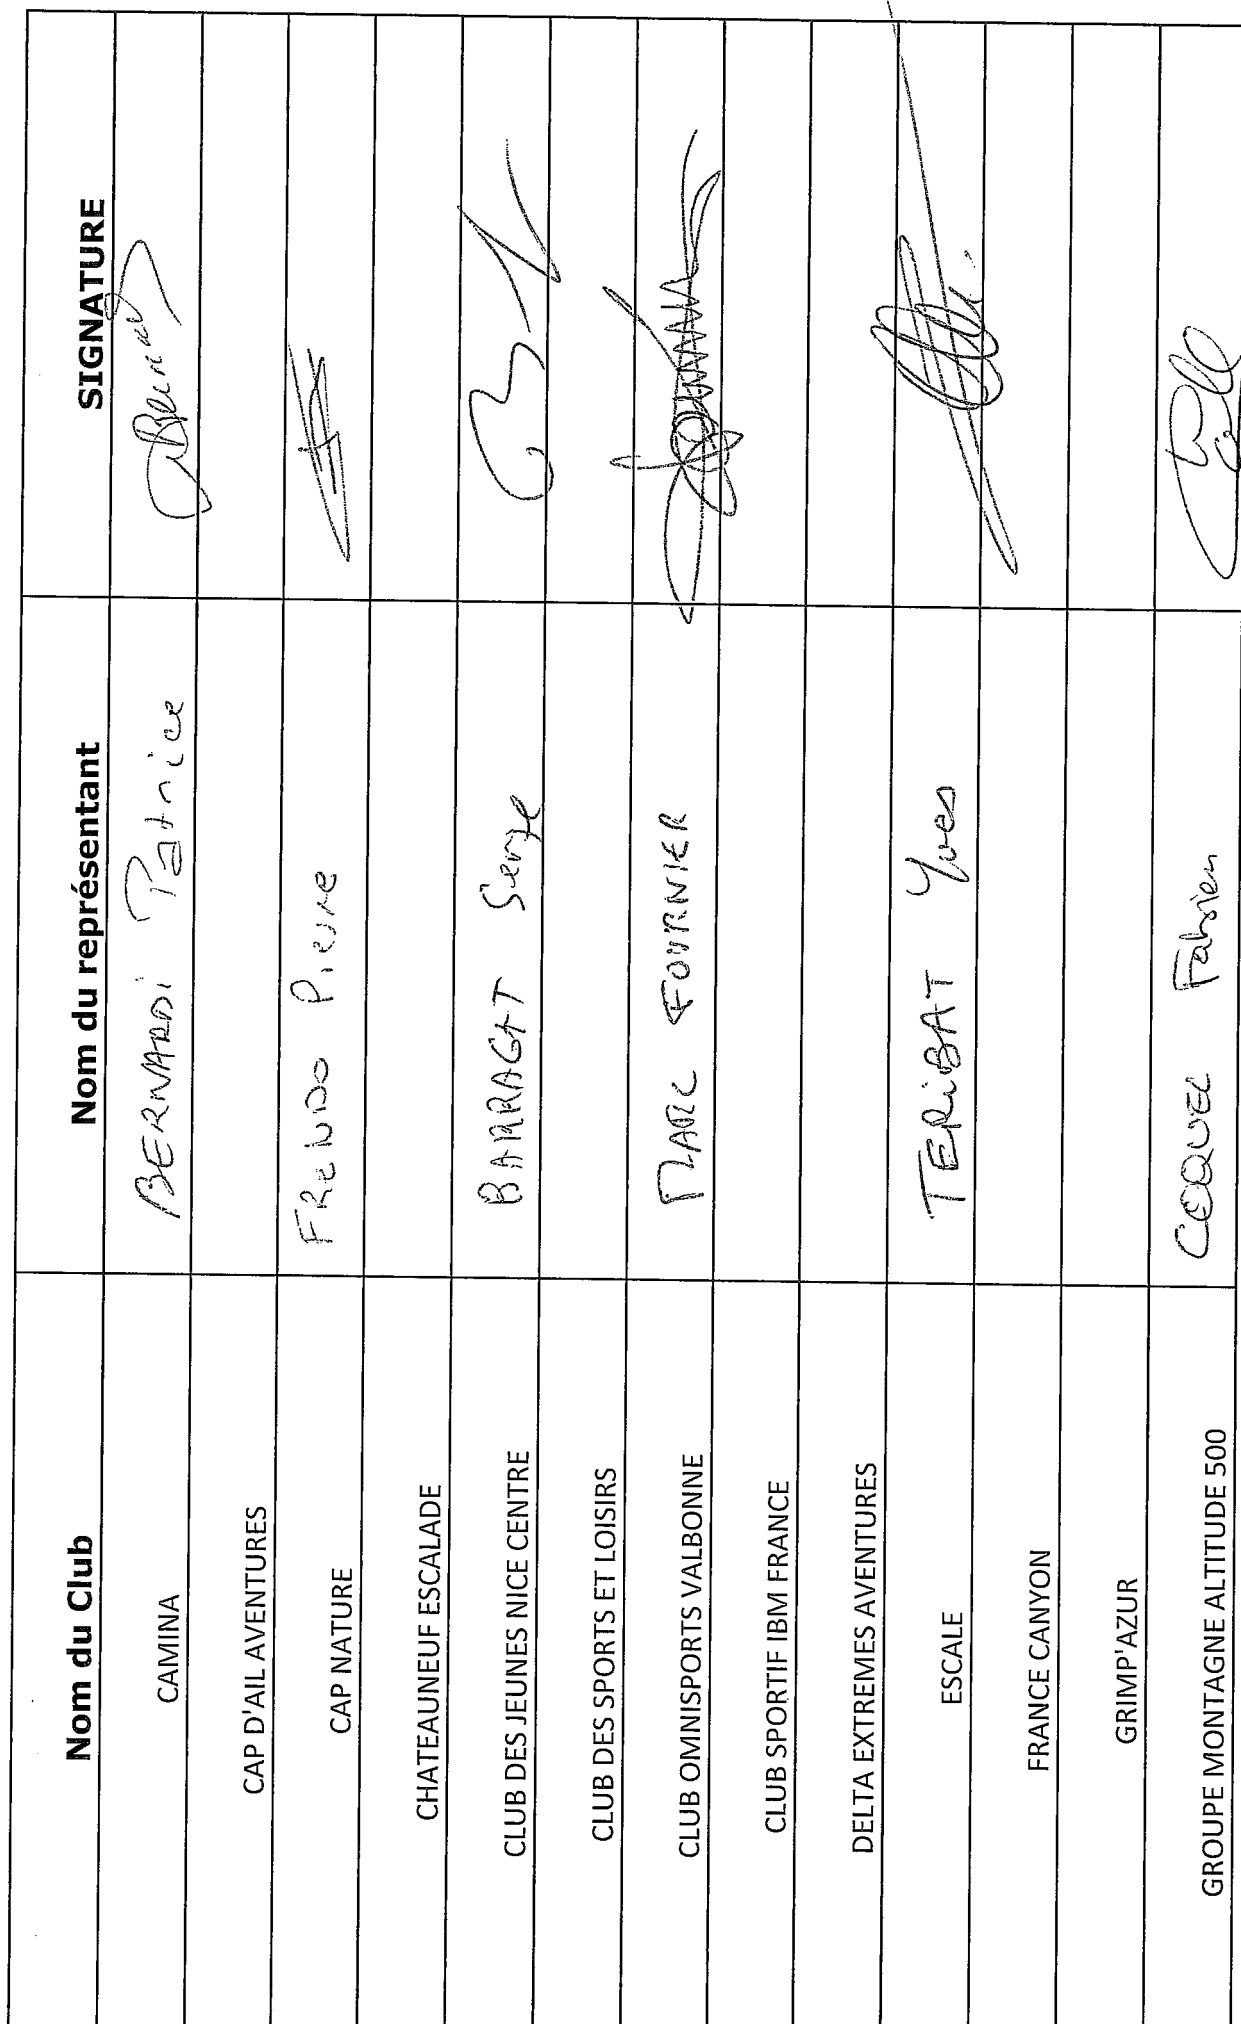 Nom du Club Nom du représentant SIGNATURE
CAMINA BERNARDI Patrice
CAP D'AIL AVENTURES
CAP NATURE FRENDO Pierre
CHATEAUNEUF ESCALADE
CLUB DES JEUNES NICE CENTRE BARRAGAT Serge
CLUB DES SPORTS ET LOISIRS
CLUB OMNISPORTS VALBONNE MARC FOURNIER
CLUB SPORTIF IBM FRANCE
DELTA EXTREMES AVENTURES
ESCALE TERIBAT Yves
FRANCE CANYON
GRIMP'AZUR
GROUPE MONTAGNE ALTITUDE 500 COQUEL Fabien